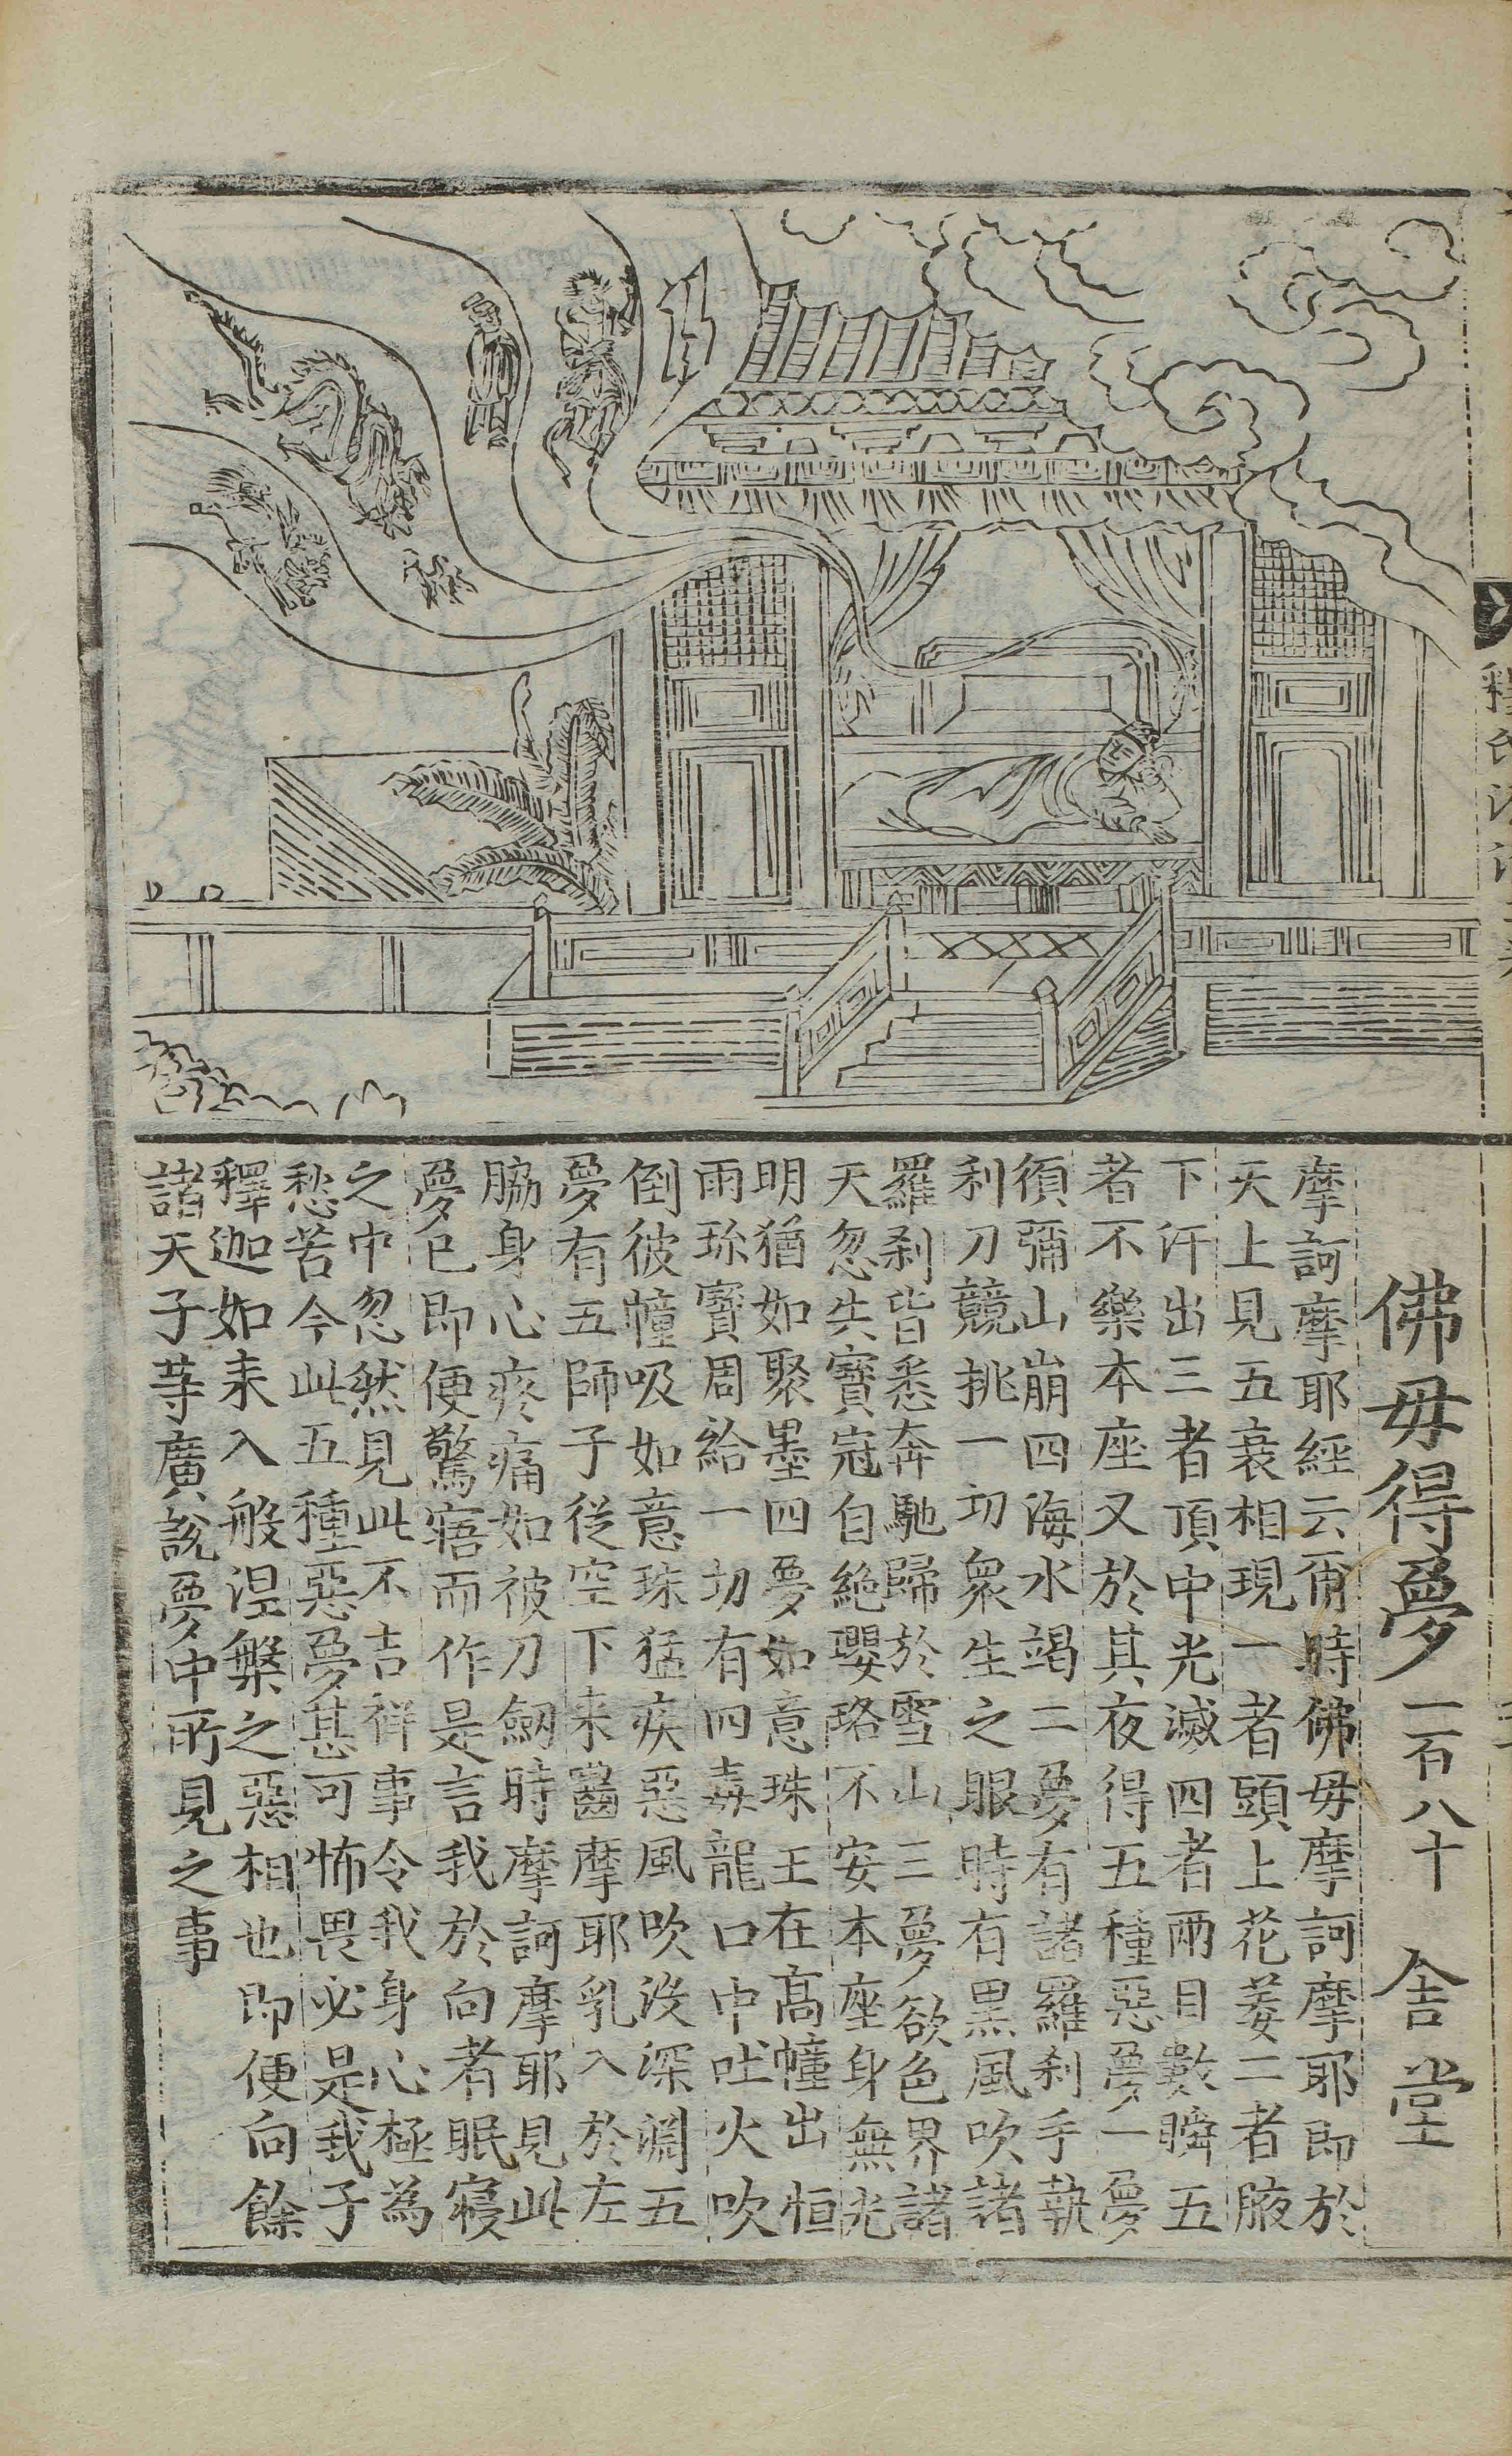 佛毋得夢一百八十 舍堂
摩訶摩耶經云爾時佛毋摩訶摩耶即於
天上見五衰相現一者頭上花萎二者腋
下汗出三者頂中光滅四者兩目數瞬五
者不樂本座又於其夜得五種惡夢一夢
須彌山崩四海水竭二夢有諸羅刹手執
利刀競挑一切衆生之眼時有黑風吹諸
羅刹皆悉奔馳歸於雪山三夢欲色界諸
天忽失寳冠自絶瓔珞不安本座身無光
明猶如聚墨四夢如意珠王在髙幢出恒
雨珎寳周給一切有四毒龍口中吐火吹
倒彼幢吸如意珠猛疾惡風吹没深淵五
夢有五師子從空下来齧摩耶乳入於左
脇身心疼痛如彼刀劒時摩訶摩耶見此
夢已即便驚寤而作是言我於向者眠寝
之中忽然見此不吉祥事令我身心極為
愁苦今此五種惡夢甚可怖畏必是我子
釋迦如来入般涅槃之惡相也即便向餘
諸天子䓁廣說夢中所見之事